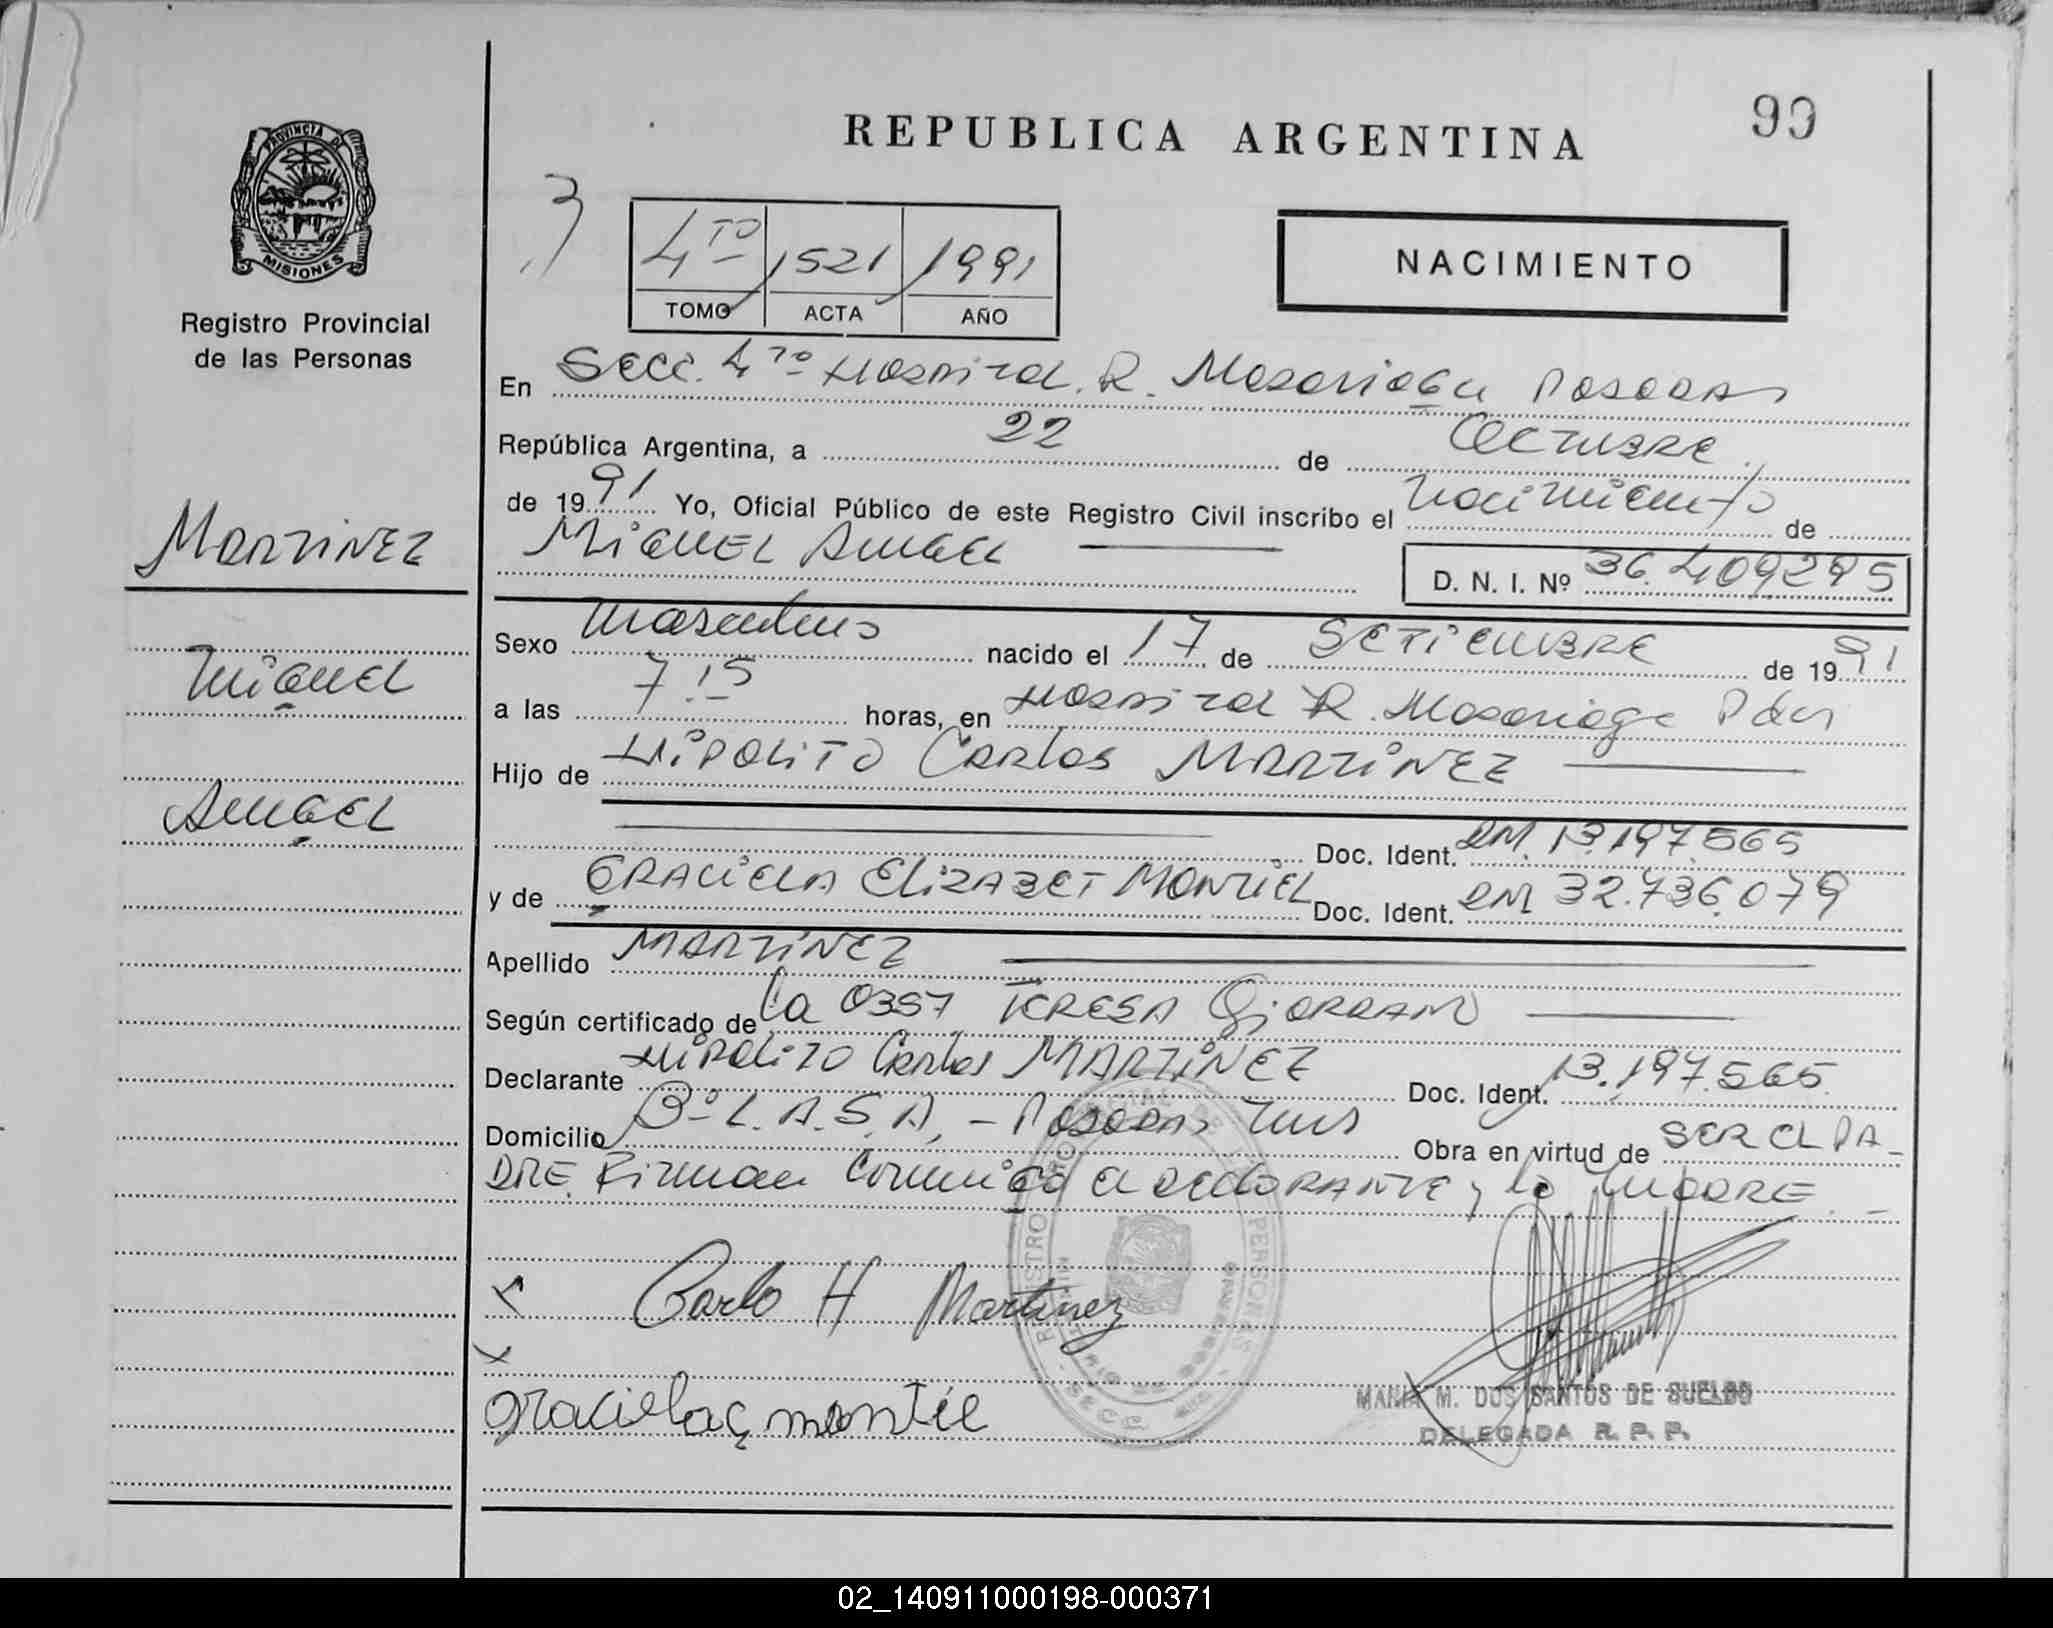 99
REPUBLICA ARGENTINA
PROVINCIA DE
MISIONES
Registro Provincial
de las Personas
4TO 1521 1991
TOMO ACTA AÑO
NACIMIENTO
En Secc. 4TO Hospital R. Madariaga POSADAS
República Argentina, a 22 de OCTUBRE
de 1991 Yo, Oficial Público de este Registro Civil inscribo el nacimiento de
MIGUEL ANGEL
D. N. I. Nº 36.409295
MARTINEZ
MIGUEL
ANGEL
Sexo masculino nacido el 17 de SETIEMBRE de 1991
a las 7.15 horas, en Hospital R. Madariaga Pdas
Hijo de HIPOLITO Carlos MARTINEZ
Doc. Ident. DNI. 13.197.565
y de GRACIELA ELIZABET MONTIEL Doc. Ident. DNI 32.736.079
Apellido MARTINEZ
Según certificado de la 0357 TERESA GIORDANO
Declarante HIPOLITO Carlos MARTINEZ Doc. Ident. 13.197.565
Domicilio Bº L.A.S.A. - POSADAS Mnes Obra en virtud de SER EL PA-
DRE. Firman conmigo el DECLARANTE y la MADRE.-
Carlo H Martinez
graciela montiel
MARIA M. DOS SANTOS DE SUELDO
DELEGADA R. P. P.
02_140911000198-000371